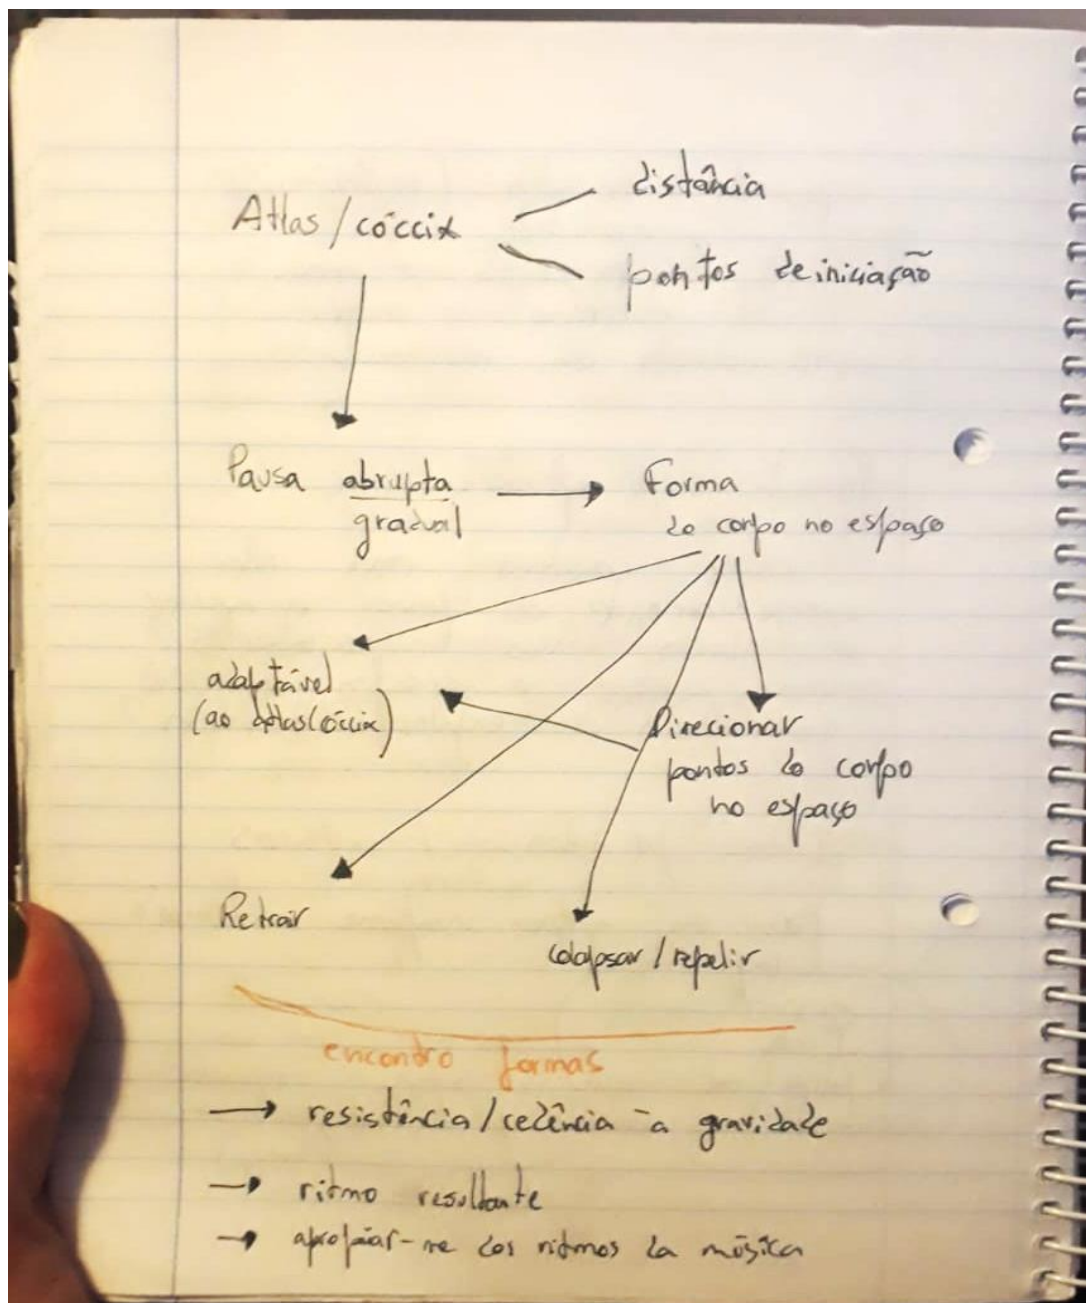 distância
Atlas / cóccix
pontos de iniciação
Pausa abrupta
gradual
Forma
do corpo no espaço
adaptável
(ao Atlas/cóccix)
Direcionar
pontos do corpo
no espaço
Retrair
colapsar / repelir
encontro formas
→ resistência/cedência à gravidade
→ ritmo resultante
→ apropiar-me dos ritmos da música